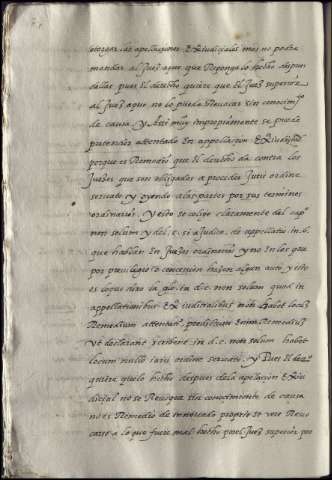 de apellaciones Extrajudiciales mas no podra
mandar al Juez aquo que Reponga lo hecho despues
dellas pues El derecho quiere que El Juez superior
al Juez aquo no lo pueda Revocar sin conoscimio
de causa. y Assi muy impropriamente se puede
pretender attentado En appellacion Extrajudicial
porque es Remedio que El derecho da contra los
Juezes que son obligados a proceder Juris ordine
servato y oyendo a las partes por sus terminos
ordinarios. y esto se colige claramente del cap
non solum y del c. si a judice. de appellatio. in. 6.
que hablan En Juezes ordinarios y no En los que
por previlegio o concession hazen algun auto, y esto
es lo que dixo la glo. in d. c. non solum quod in
appellationibus Extrajudicialibus non habet locum
Remedium attentati. Enim Remedium
vt declarant scribentes in d. c. non solum habet
locum nullo iuris ordine servato. y Pues El der.o
quiere que lo hecho despues de la apelacion Extra
judicial no se Revoque sin conoscimiento de causa
no es Remedio de innovado proprio se vere Revo
carse a lo que fuere mal hecho por el Juez superior pro